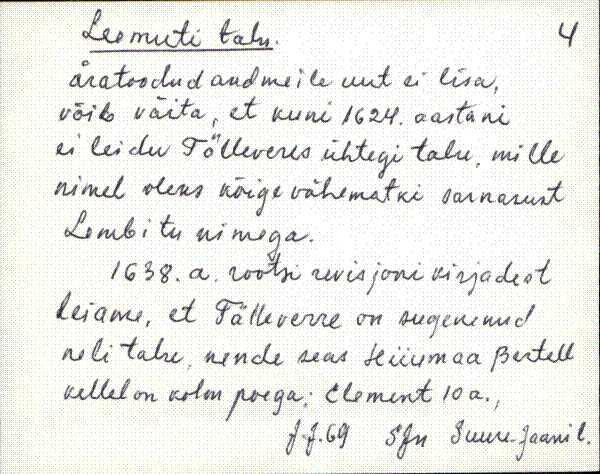 Leomuti talu. 4
äratoodud andmeile uut ei lisa,
võib väita, et kuni 1624. aastani
ei leidu Tälleveres ühtegi talu, mille
nimel oleks kõige vähematki sarnasust
Lembitu nimega.
1638. a. rootsi revisjoni kirjadest
leiame, et Fälleverre on sugenenud
neli talu, nende seas Hiiumaa Bertell
kellel on kolm poega: Clement 10 a.,
J.J. 69 SJn Suure-Jaani l.